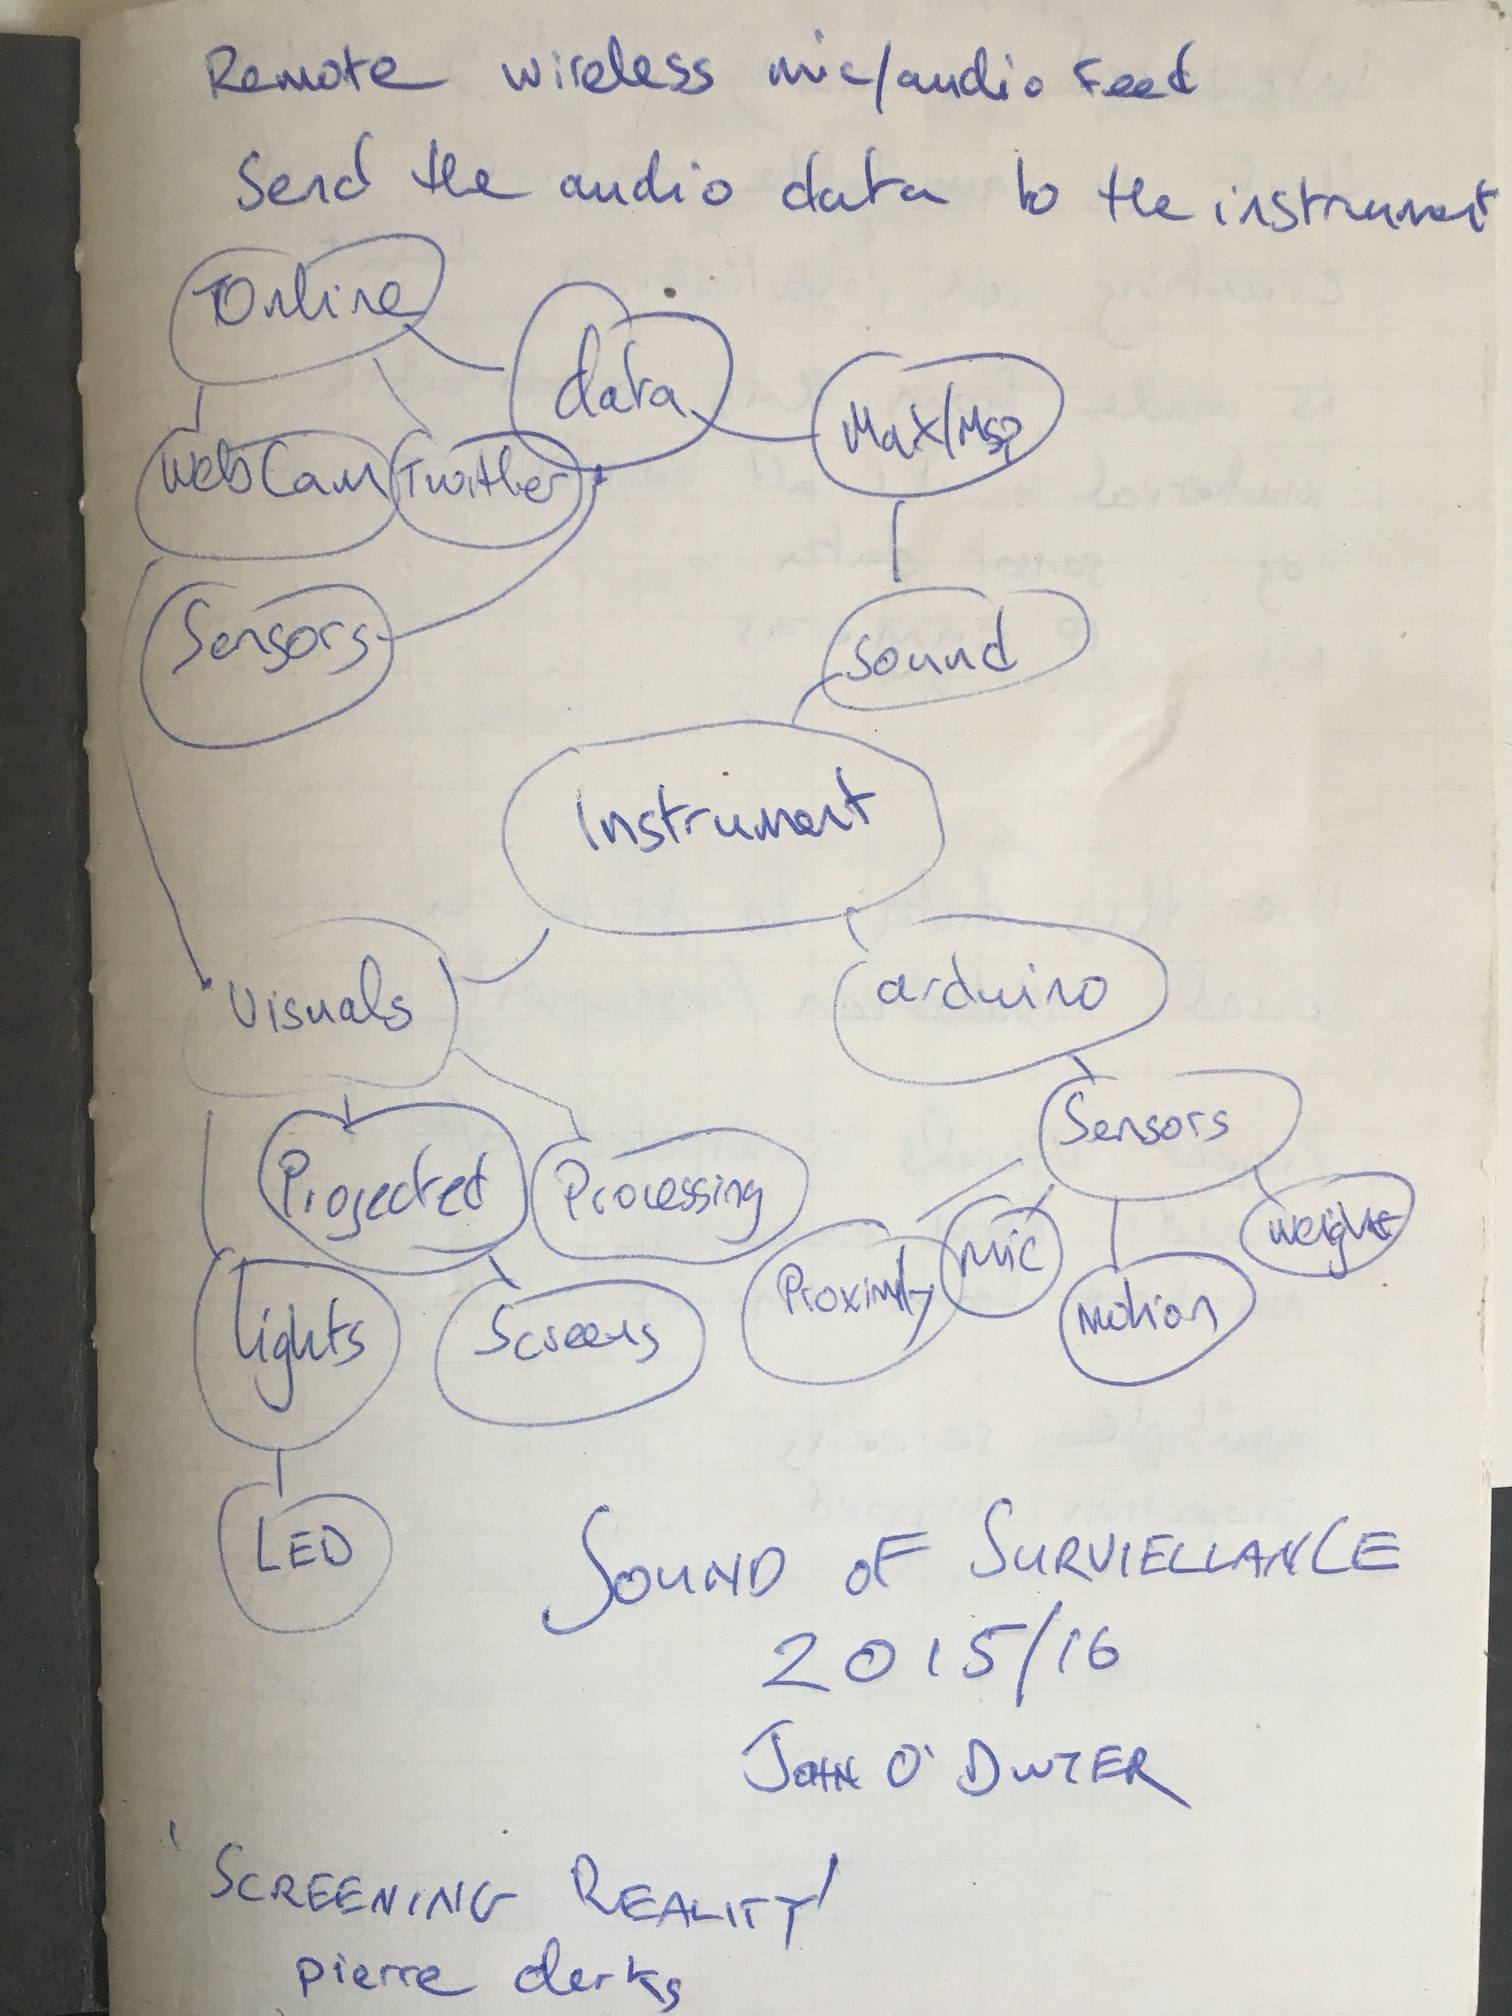 Remote wireless mic/audio feed
Send the audio data to the instrument
Online
data
Max/Msp
WebCam
Twitter
Sensors
Sound
Instrument
Visuals
arduino
Sensors
Projected
Processing
Proximity
Mic
Motion
Weight
Lights
Screens
LED
SOUND OF SURVIELLANCE
2015/16
JOHN O'DWYER
'SCREENING REALITY'
pierre derks